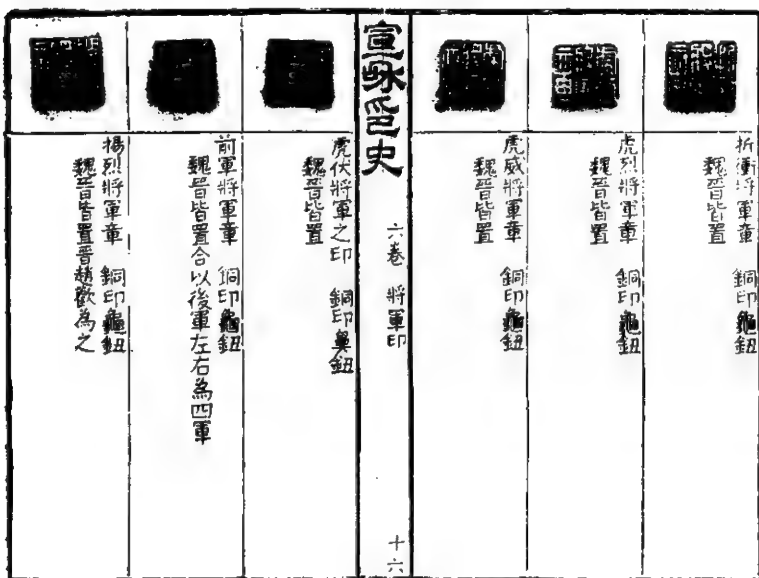 折衝將軍章　銅印龜鈕
魏晉皆置
虎烈將軍章　銅印龜鈕
魏晉皆置
虎威將軍章　銅印龜鈕
魏晉皆置
宣和印史
六卷　將軍印
十六
虎伏將軍之印　銅印鼻鈕
魏晉皆置
前軍將軍章　銅印龜鈕
魏晉皆置合以後軍左右為四軍
揚烈將軍章　銅印龜鈕
魏晉皆置晉趙歡為之